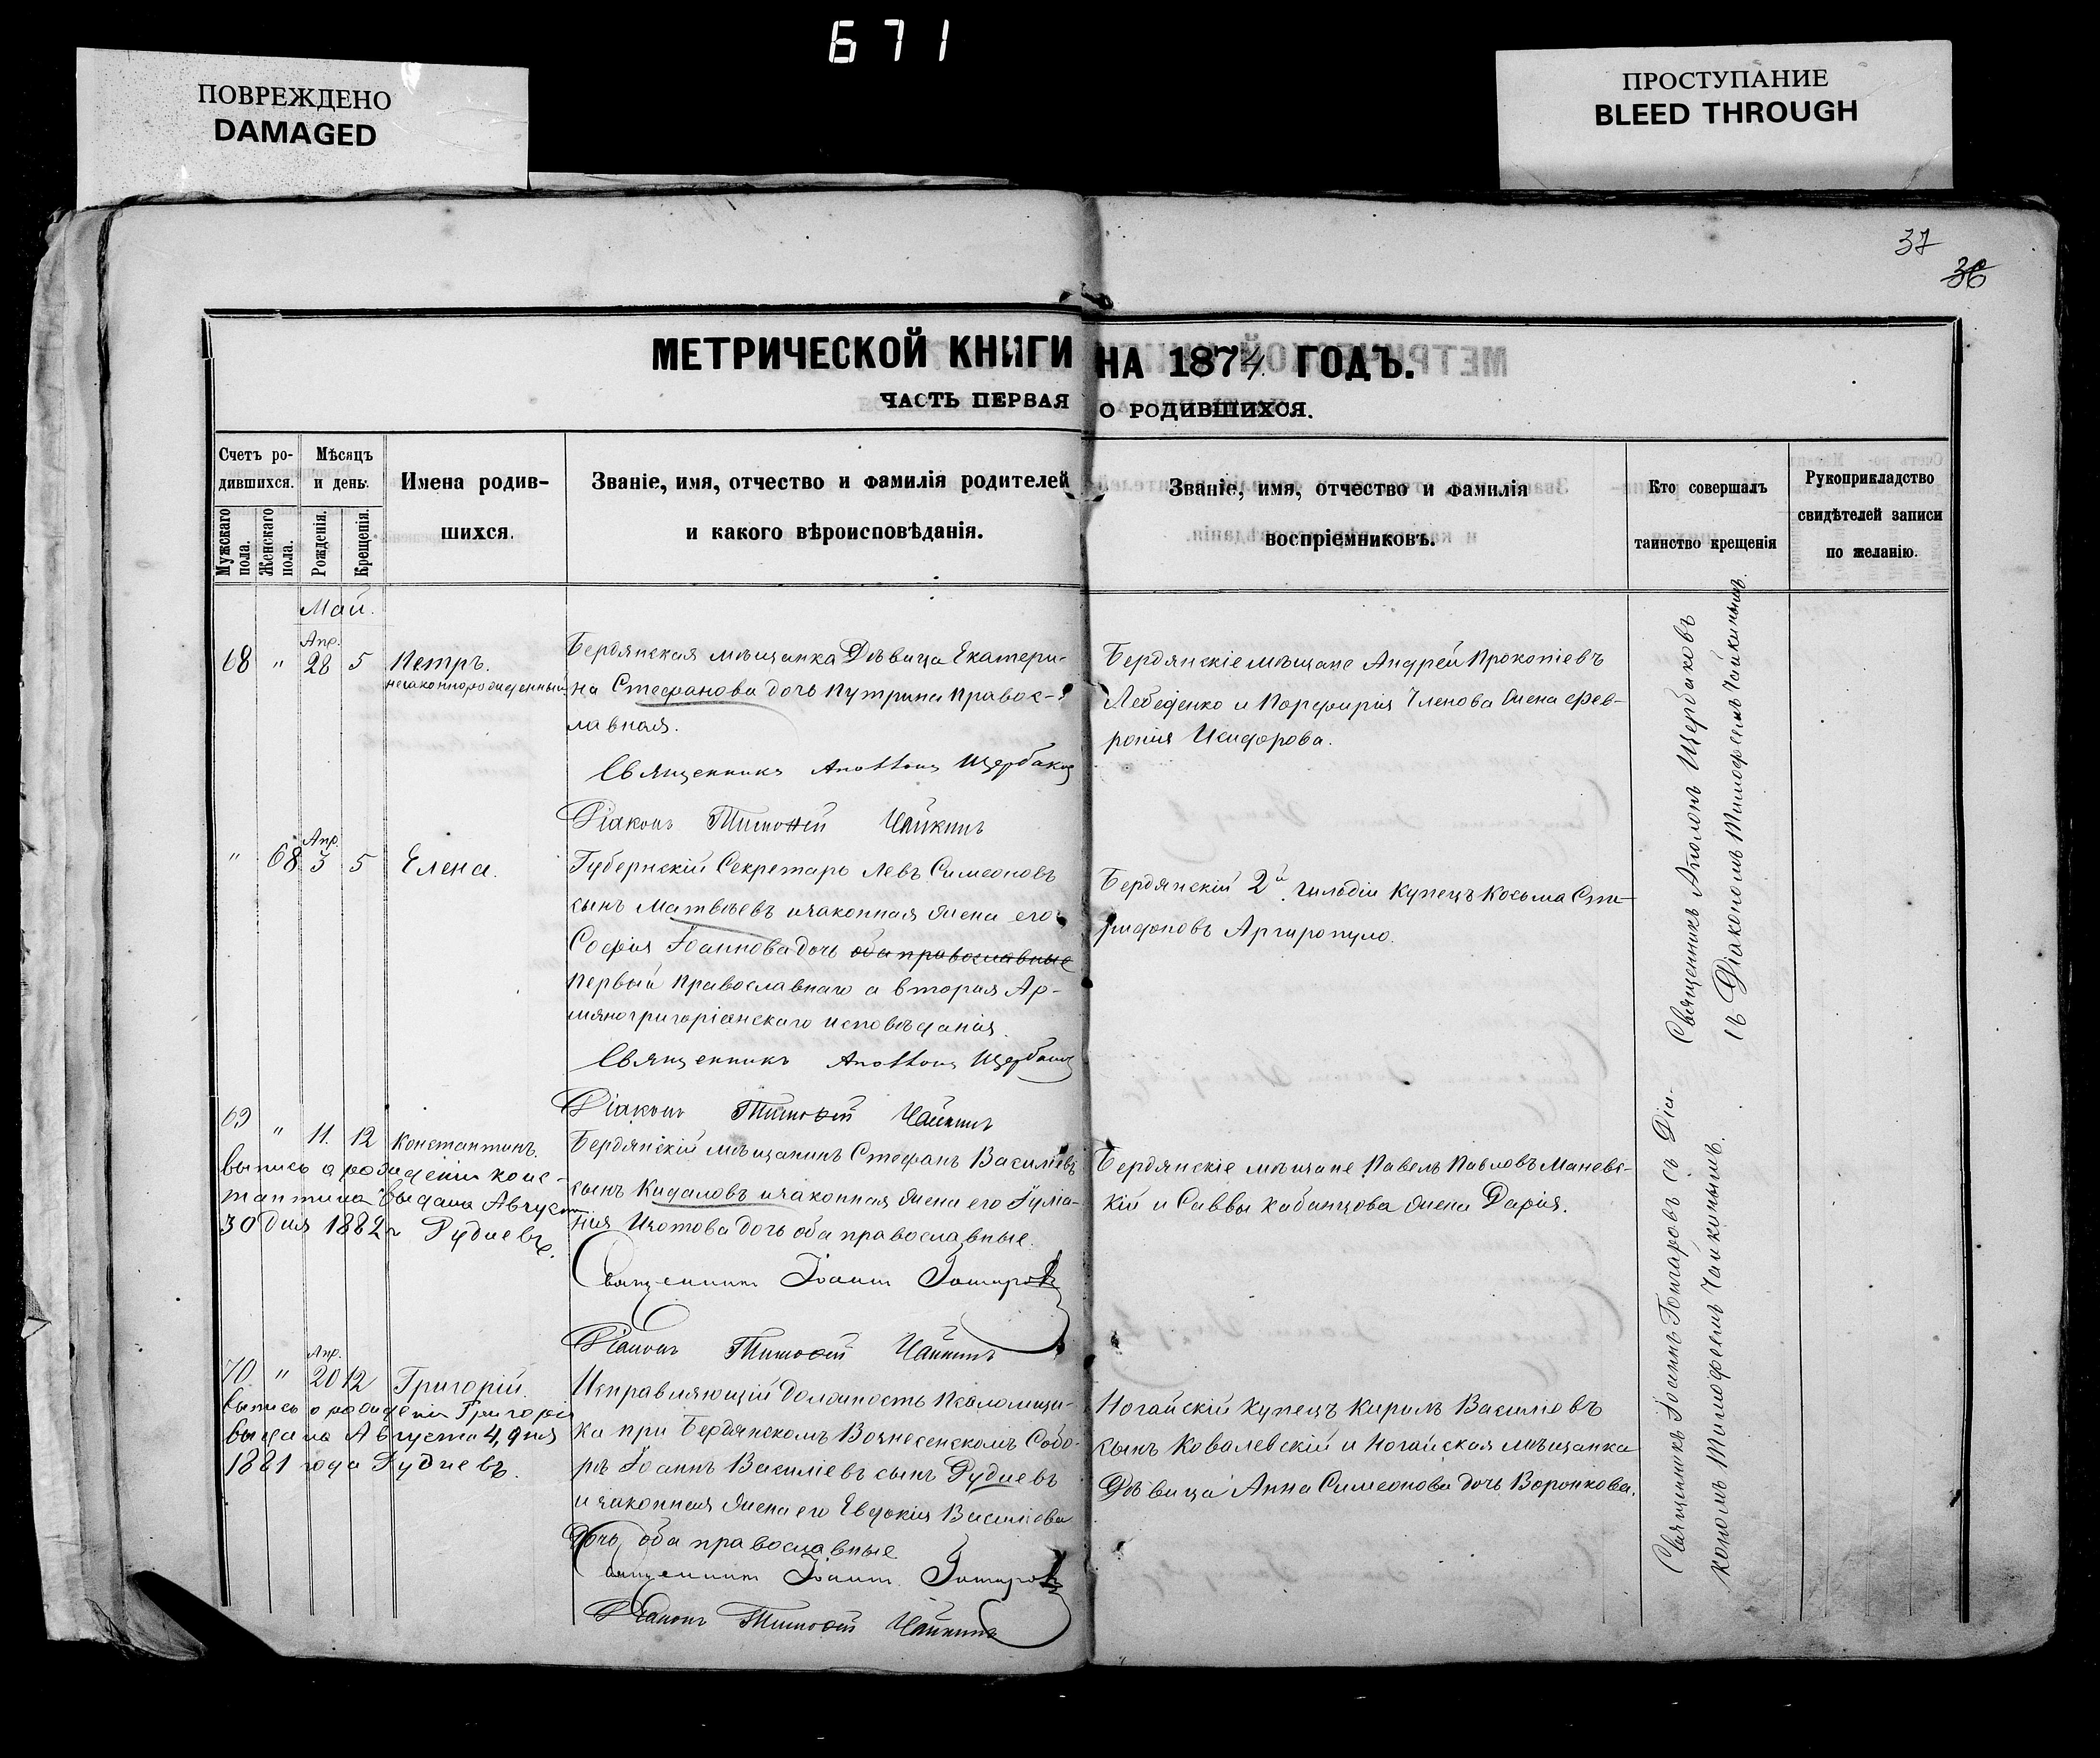 671
ПОВРЕЖДЕНО
DAMAGED
ПРОСТУПАНИЕ
BLEED THROUGH
37
36
МЕТРИЧЕСКОЙ КНИГИ НА 1874 ГОДЪ.
ЧАСТЬ ПЕРВАЯ О РОДИВШИХСЯ.
Счетъ ро-
дившихся.
Мужскаго пола.
Женскаго пола.
Мѣсяцъ
и день.
Рожденія.
Крещенія.
Имена родив-
шихся.
Званіе, имя, отчество и фамилія родителей
и какого вѣроисповѣданія.
Званіе, имя, отчество и фамилія
воспріемниковъ.
Кто совершалъ
таинство крещенія
Рукоприкладство
свидѣтелей записи
по желанію.
Май.
68 " Апр. 28 5
Петръ.
незаконнорожденный
Бердянская мѣщанка Дѣвица Екатери-
на Стефанова дочь Путрина Правос-
лавная.
Священникъ Аполлонъ Щербаковъ
Діаконъ Тимоѳей Чайкинъ
Бердянскіе мѣщане Андрей Прокопіевъ
Лебеденко и Порфирія Членова жена Фев-
ронія Исидорова.
" 68 Апр. 3 5
Елена.
Губернскій Секретарь Левъ Симеоновъ
сынъ Матвѣевъ и законная жена его
Софія Іоаннова дочь оба православные
первый Православнаго а вторая Ар-
мяногригоріанскаго исповѣданія.
Священникъ Аполлонъ Щербаковъ
Діаконъ Тимоѳей Чайкинъ
Бердянскій 2й гильдіи Купецъ Косьма Спи-
ридоновъ Аргиропуло.
Священникъ Аполонъ Щербаковъ
съ Діакономъ Тимофеемъ Чайкинымъ.
69 " 11. 12
Константинъ.
Выпись о рожденіи Конс-
тантина выдана Август
30 дня 1882 г Рудневъ.
Бердянскій мѣщанинъ Стефанъ Василіевъ
сынъ Кидаловъ и законная жена его Іуліа-
нія Изотова дочь оба православные.
Священникъ Іоаннъ Гонгаровъ
Діаконъ Тимоѳей Чайкинъ
Бердянскіе мѣщане Павелъ Павловъ Маневс-
кій и Саввы Кабанцова жена Дарія.
70. " Апр. 20 12
Григорій.
Выпись о рожденіи Григорія
выдана Августа 4, дня
1881 года Рудневъ.
Исправляющій Должность Псаломщи-
ка при Бердянскомъ Вознесенскомъ Собо-
рѣ Іоаннъ Василіевъ сынъ Рудневъ
и законная жена его Евдокія Василіева
дочь, оба православные
Священникъ Іоаннъ Гонгаровъ
Діаконъ Тимоѳей Чайкинъ
Ногайскій Купецъ Кирилъ Василіевъ
сынъ Ковалевскій и Ногайская мѣщанка
Дѣвица Анна Симеонова дочь Воронкова.
Священникъ Іоаннъ Гонгаровъ съ Діа-
кономъ Тимофеемъ Чайкинымъ.